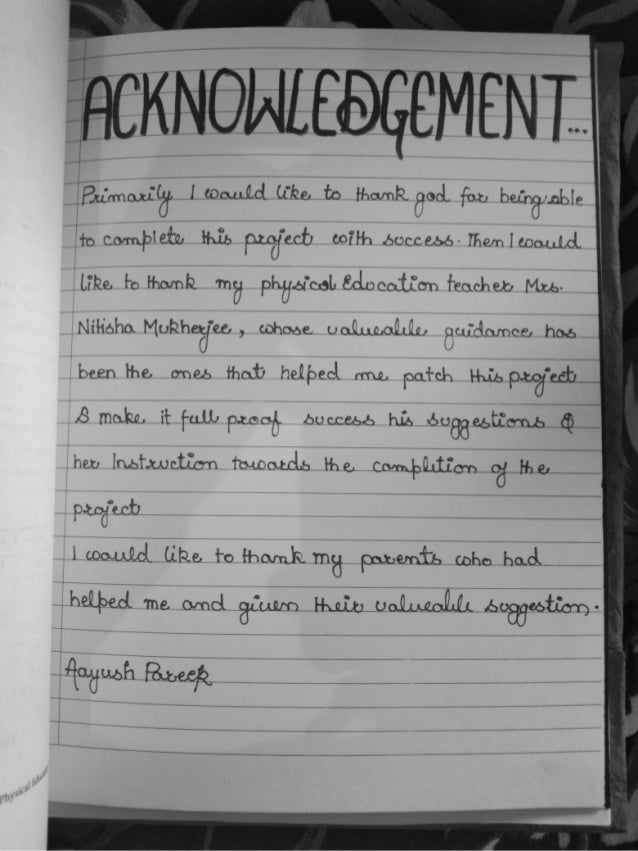 ACKNOWLEDGEMENT...
Primarily I would like to thank god for being able
to complete this project with success. Then I would
like to thank my physical Education teacher Mrs.
Nitisha Mukherjee, whose valueable guidance has
been the ones that helped me patch this project
& make it full proof success his suggestions &
her Instruction towards the complition of the
project
I would like to thank my parents who had
helped me and given their valueable suggestion.
Aayush Pareek
Physical